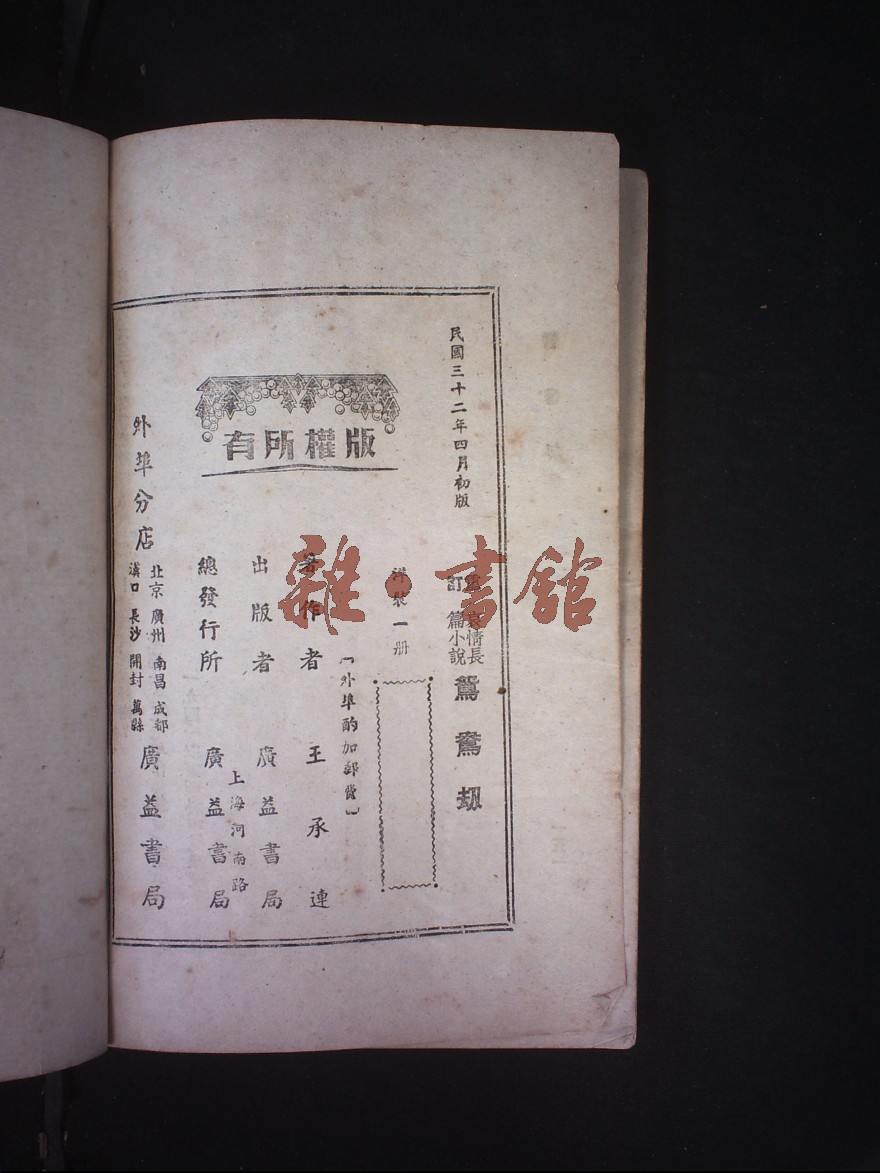 民國三十二年四月初版
訂 哀情長篇小說 鴛鴦刼
洋裝一册
【外埠酌加郵費】
版權所有
著作者 王承連
出版者 廣益書局
上海河南路
總發行所 廣益書局
外埠分店 北京 廣州 南昌 成都 漢口 長沙 開封 萬縣 廣益書局
雜·書館